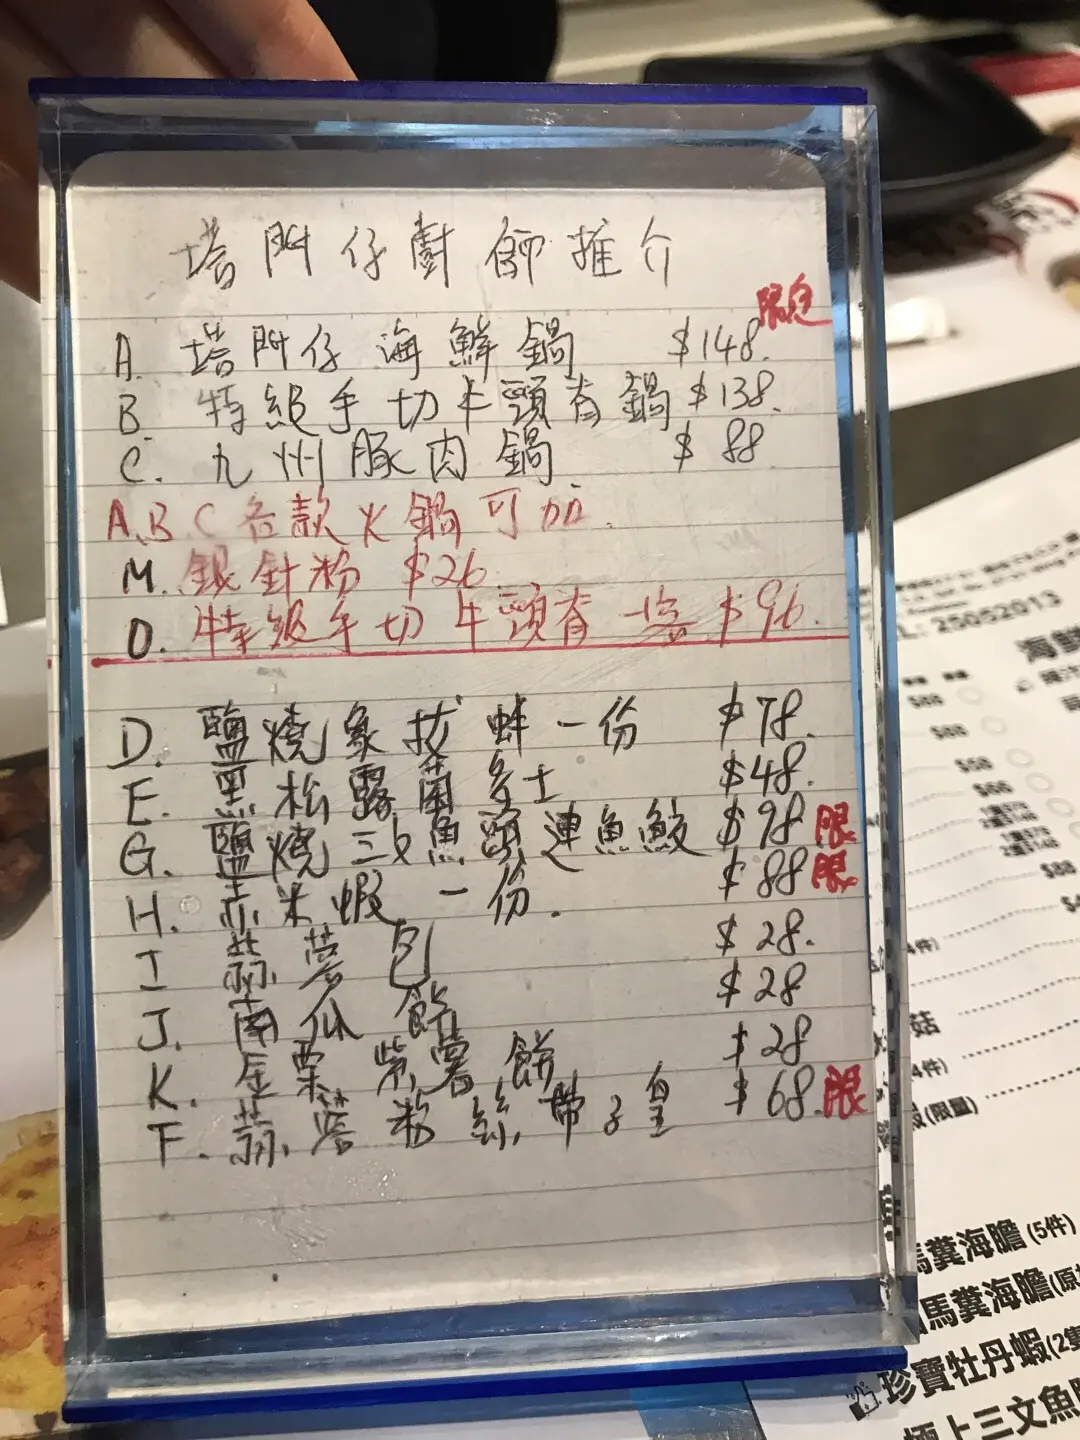 塔門仔廚師推介
限定
A. 塔門仔海鮮鍋 $148.
B. 特級手切牛頸脊鍋 $138.
C. 九州豚肉鍋 $88
A.B.C各款火鍋可加.
M. 銀針粉 $26
O. 特級手切牛頸脊一客 $96.
D. 鹽燒象拔蚌一份 $78.
E. 黑松露菌多士 $48.
G. 鹽燒三文魚頭連魚鮫 $98 限
H. 赤米蝦一份. $88 限
I 蒜蓉包 $28.
J. 南瓜餅 $28
K. 金粟紫薯餅 $28
F. 蒜蓉粉絲帶子皇 $68. 限
L: 25052013
海鮮
$88
$88
$58
$66
$88
菇
4件)
(限量)
馬糞海膽 (5件)
馬糞海膽(原
珍寶牡丹蝦(2隻
極上三文魚